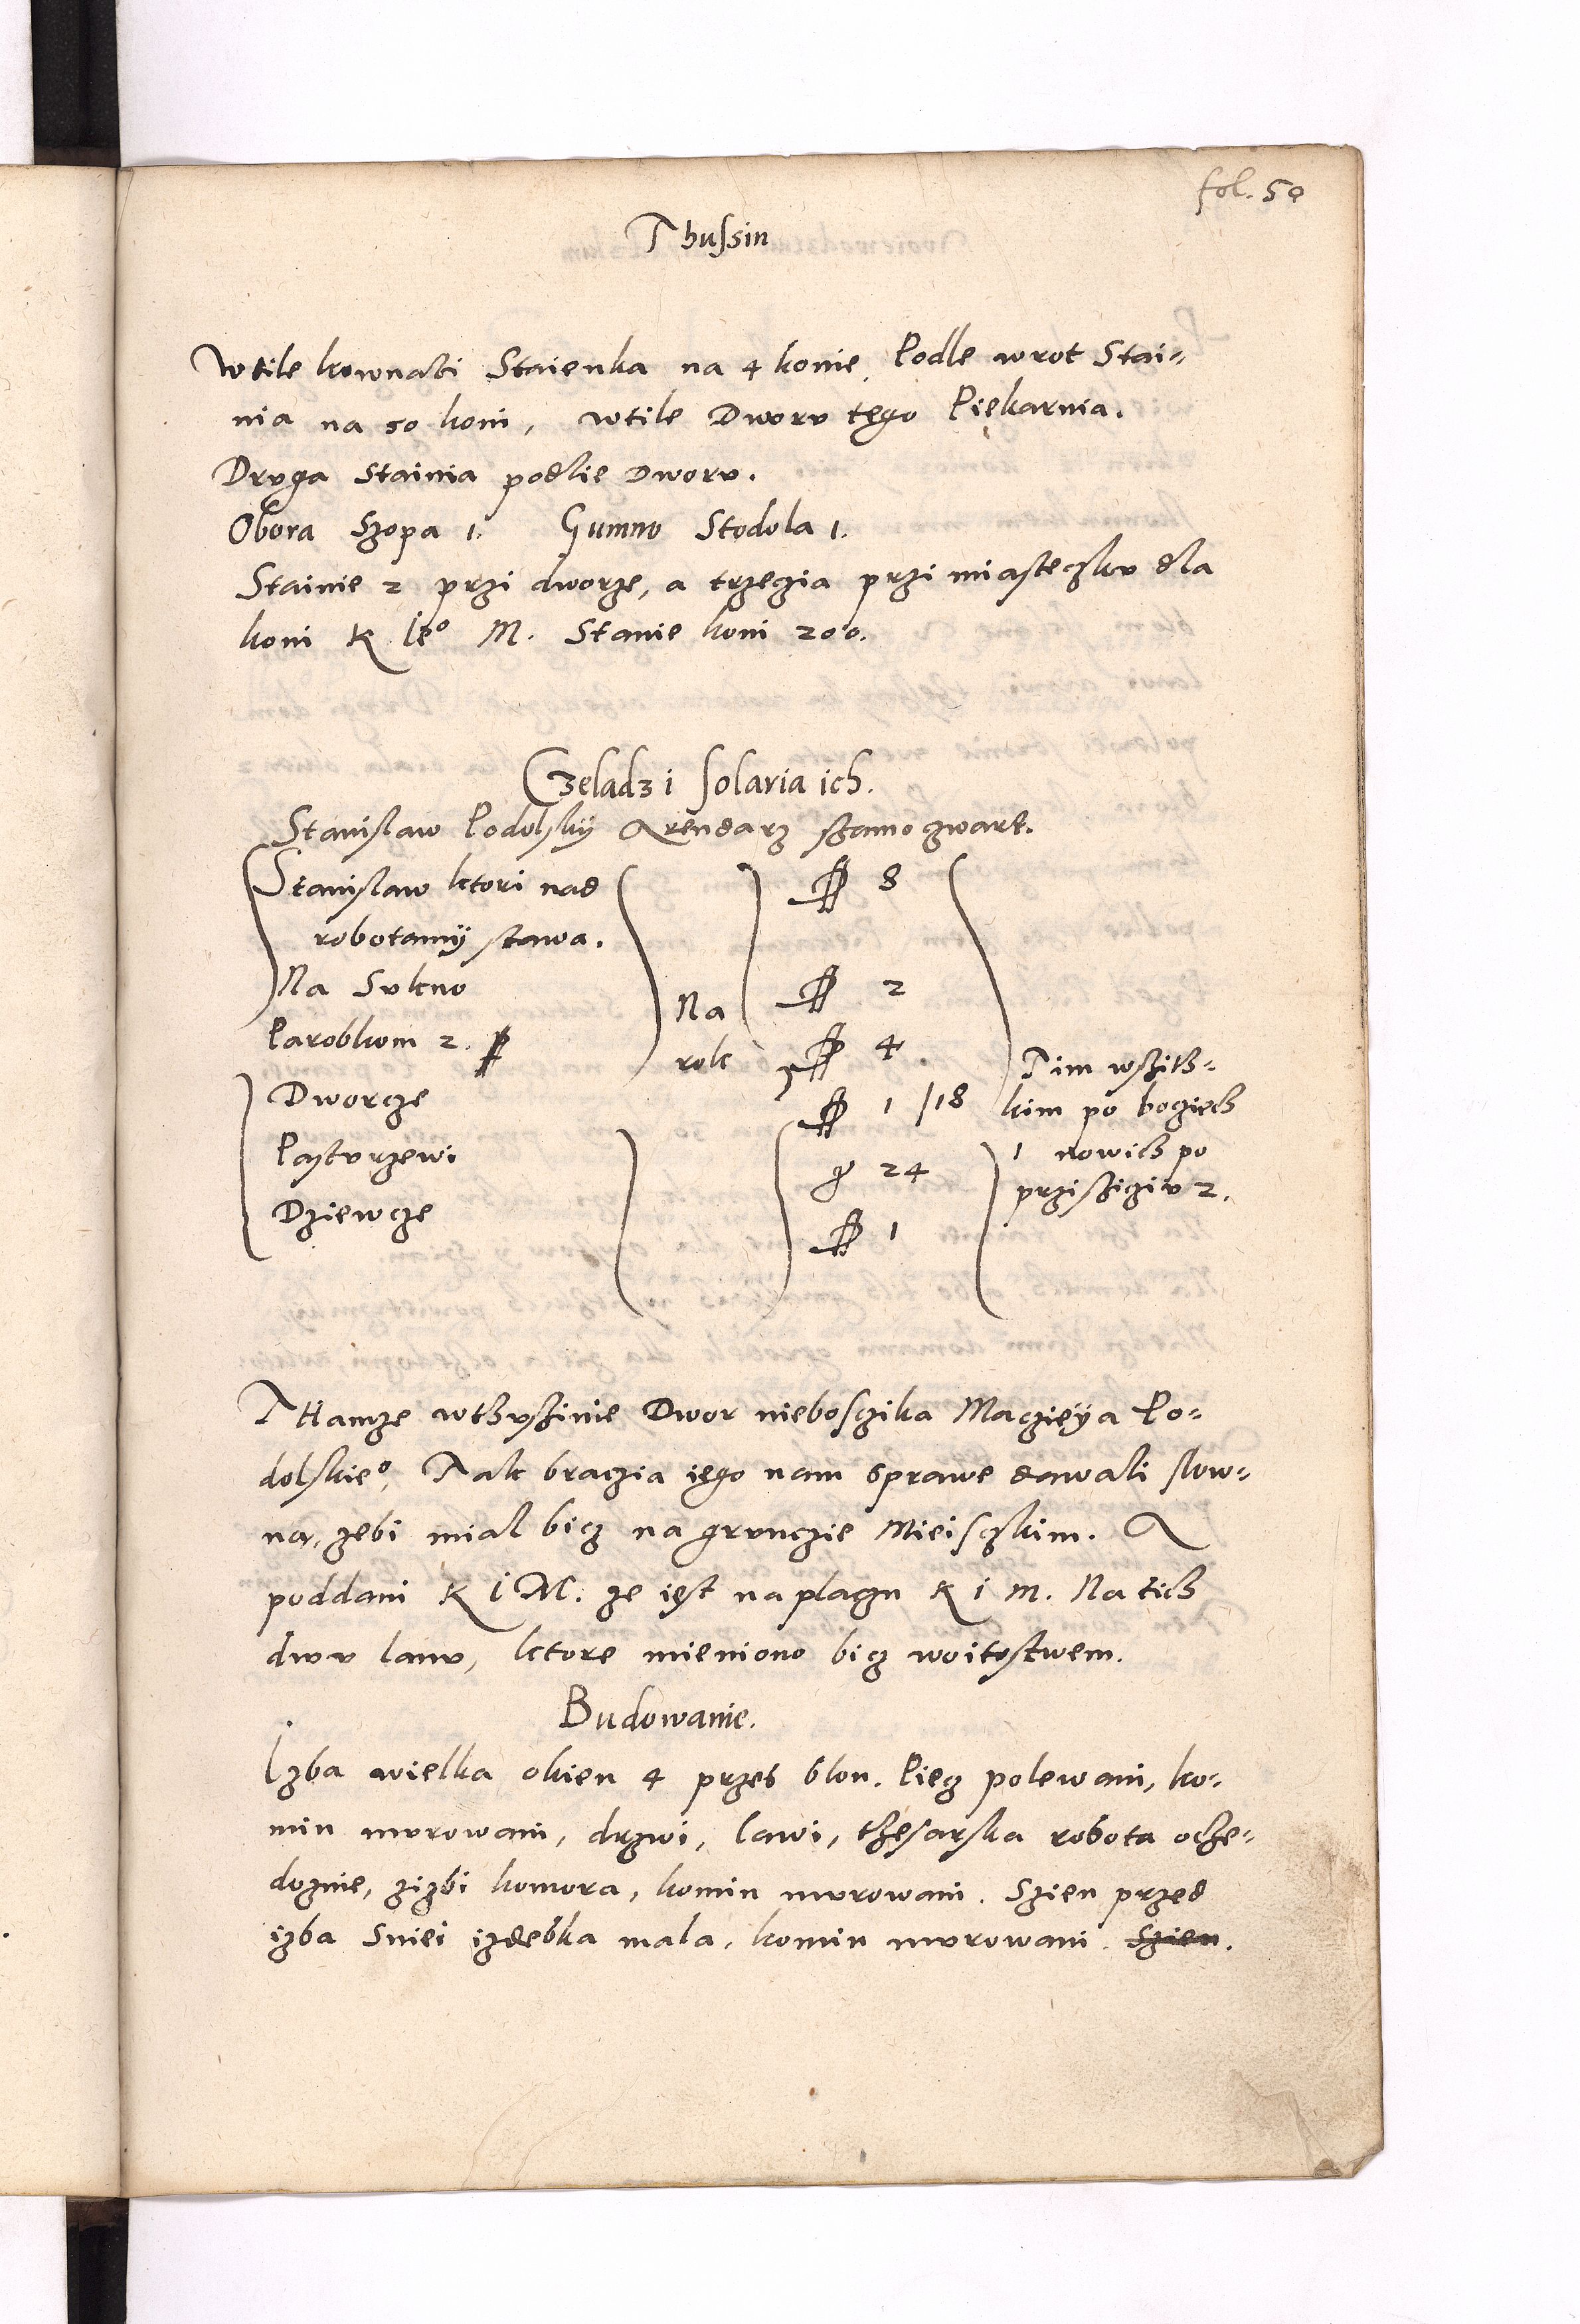 fol. 50
Thussin
Wtile kownati Staienka na 4 konie, Podle wrot Stai-
nia na 50 koni, wtile Dworv tego Piękarnia.
Drvga Stainia podlie Dworv.
Obora Szopa 1. Gumno Stodola 1.
Stainie 2 przi dworze, a trzeczia przi miasteczkv dla
koni K Ie° M. Stanie koni 200.
Czeladz i Solaria ich.
Stanislaw Podolskÿ Arendarz szamoczwart.
Stanislaw ktori nad
robotamÿ stawa.
8
Na Svkno
2
Na
rok
Parobkom 2.
4.
Dworcze
1 /18
Pastvrzewi
g 24
Dziewcze
1
Tim wszith-
kim po boczich
1 nowich po
przisziciv 2.
Thamze wthvszinie Dwor nieboszczika Macziéÿa Po-
dolskie°, Tak braczia iego nam sprawe dawali slow-
na, zebi mial bicz na grvnczie Mieisczkim. A
poddani K I M. ze iest na placzu K i M. Na tich
dwv lanv, ktore mieniono bicz woitostwem.
Budowanie.
Izba wielka okien 4 przes blon. Piecz polewani, ko-
min mvrowani, drzwi, lawi, thesarska robota oche-
doznie, zizbi komora, komin mvrowani. Szien przed
izba Sniei izdebka mala, komin mvrowani. Szien.